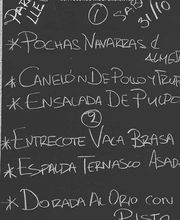 ① SAB
31/10
*POCHAS NAVARRAS C
ALMEJ
*CANELÓN DE POLLO Y TRUF
*ENSALADA DE PULPO
②
*ENTRECOTE VACA BRASA
*ESPALDA TERNASCO ASADA
*DORADA AL ORIO CON
PISTO